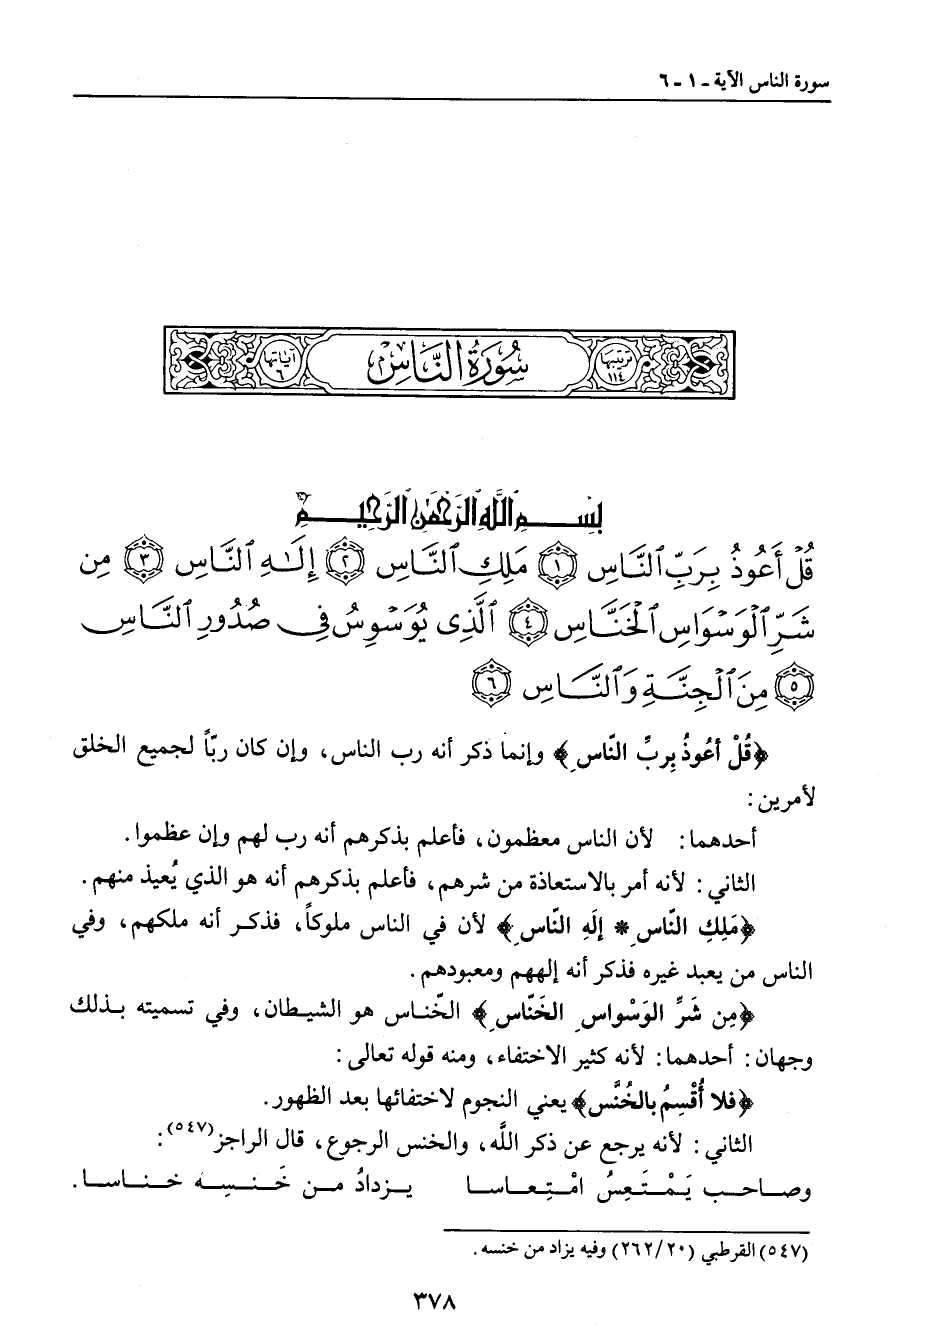 سورة الناس الآية ـ ١ ـ ٦
ترتيبها ١١٤ سُورَةُ النَّاسِ آياتها ٦
بِسْمِ اللَّهِ الرَّحْمَٰنِ الرَّحِيمِ
قُلْ أَعُوذُ بِرَبِّ ٱلنَّاسِ ١ مَلِكِ ٱلنَّاسِ ٢ إِلَٰهِ ٱلنَّاسِ ٣ مِن
شَرِّ ٱلْوَسْوَاسِ ٱلْخَنَّاسِ ٤ ٱلَّذِى يُوَسْوِسُ فِى صُدُورِ ٱلنَّاسِ
٥ مِنَ ٱلْجِنَّةِ وَٱلنَّاسِ ٦
﴿قُلْ أعُوذُ بِربِّ النّاسِ﴾ وإنما ذكر أنه رب الناس، وإن كان ربّاً لجميع الخلق
لأمرين:
أحدهما: لأن الناس معظمون، فأعلم بذكرهم أنه رب لهم وإن عظموا.
الثاني: لأنه أمر بالاستعاذة من شرهم، فأعلم بذكرهم أنه هو الذي يُعيذ منهم.
﴿مَلِكِ النّاسِ * إلَهِ النّاسِ﴾ لأن في الناس ملوكاً، فذكر أنه ملكهم، وفي
الناس من يعبد غيره فذكر أنه إلههم ومعبودهم.
﴿مِن شَرِّ الوَسْواسِ الخَنّاسِ﴾ الخّناس هو الشيطان، وفي تسميته بذلك
وجهان: أحدهما: لأنه كثير الاختفاء، ومنه قوله تعالى:
﴿فلا أُقْسِمُ بالخُنَّس﴾ يعني النجوم لاختفائها بعد الظهور.
الثاني: لأنه يرجع عن ذكر اللَّه، والخنس الرجوع، قال الراجز(٥٤٧):
وصاحب يَمْتَعِسُ امْتِعاسا يزدادُ من خَنسِه خناسا.
(٥٤٧) القرطبي (٢٦٢/٢٠) وفيه يزاد من خنسه.
٣٧٨